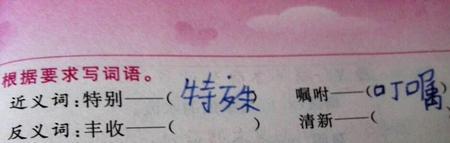 根据要求写词语。
近义词:特别——(特殊) 嘱咐——(叮嘱
反义词:丰收——( ) 清新——(